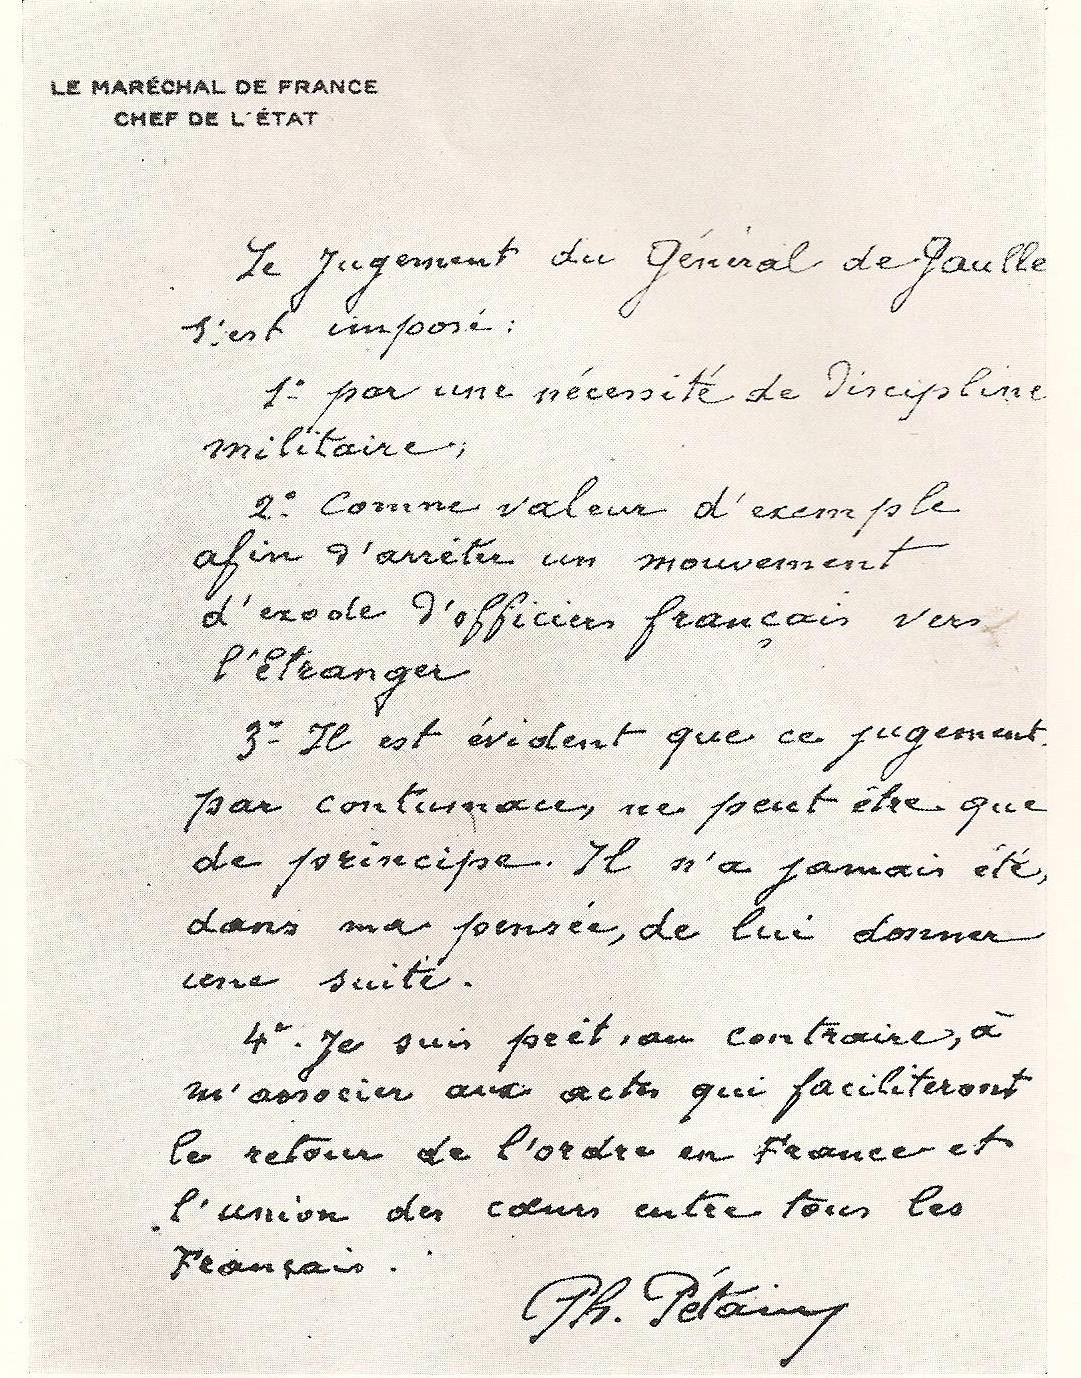 LE MARÉCHAL DE FRANCE
CHEF DE L'ÉTAT
Le Jugement du Général de Gaulle
s'est imposé :
1° par une nécessité de Discipline
militaire ;
2° Comme valeur d'exemple
afin d'arrêter un mouvement
d'exode d'officiers français vers
l'Étranger
3° Il est évident que ce jugement
par contumace, ne peut être que
de principe. Il n'a jamais été,
dans ma pensée, de lui donner
une suite.
4°. Je suis prêt, au contraire, à
m'associer aux actes qui faciliteront
le retour de l'ordre en France et
l'union des cœurs entre tous les
Français.
Ph. Pétain